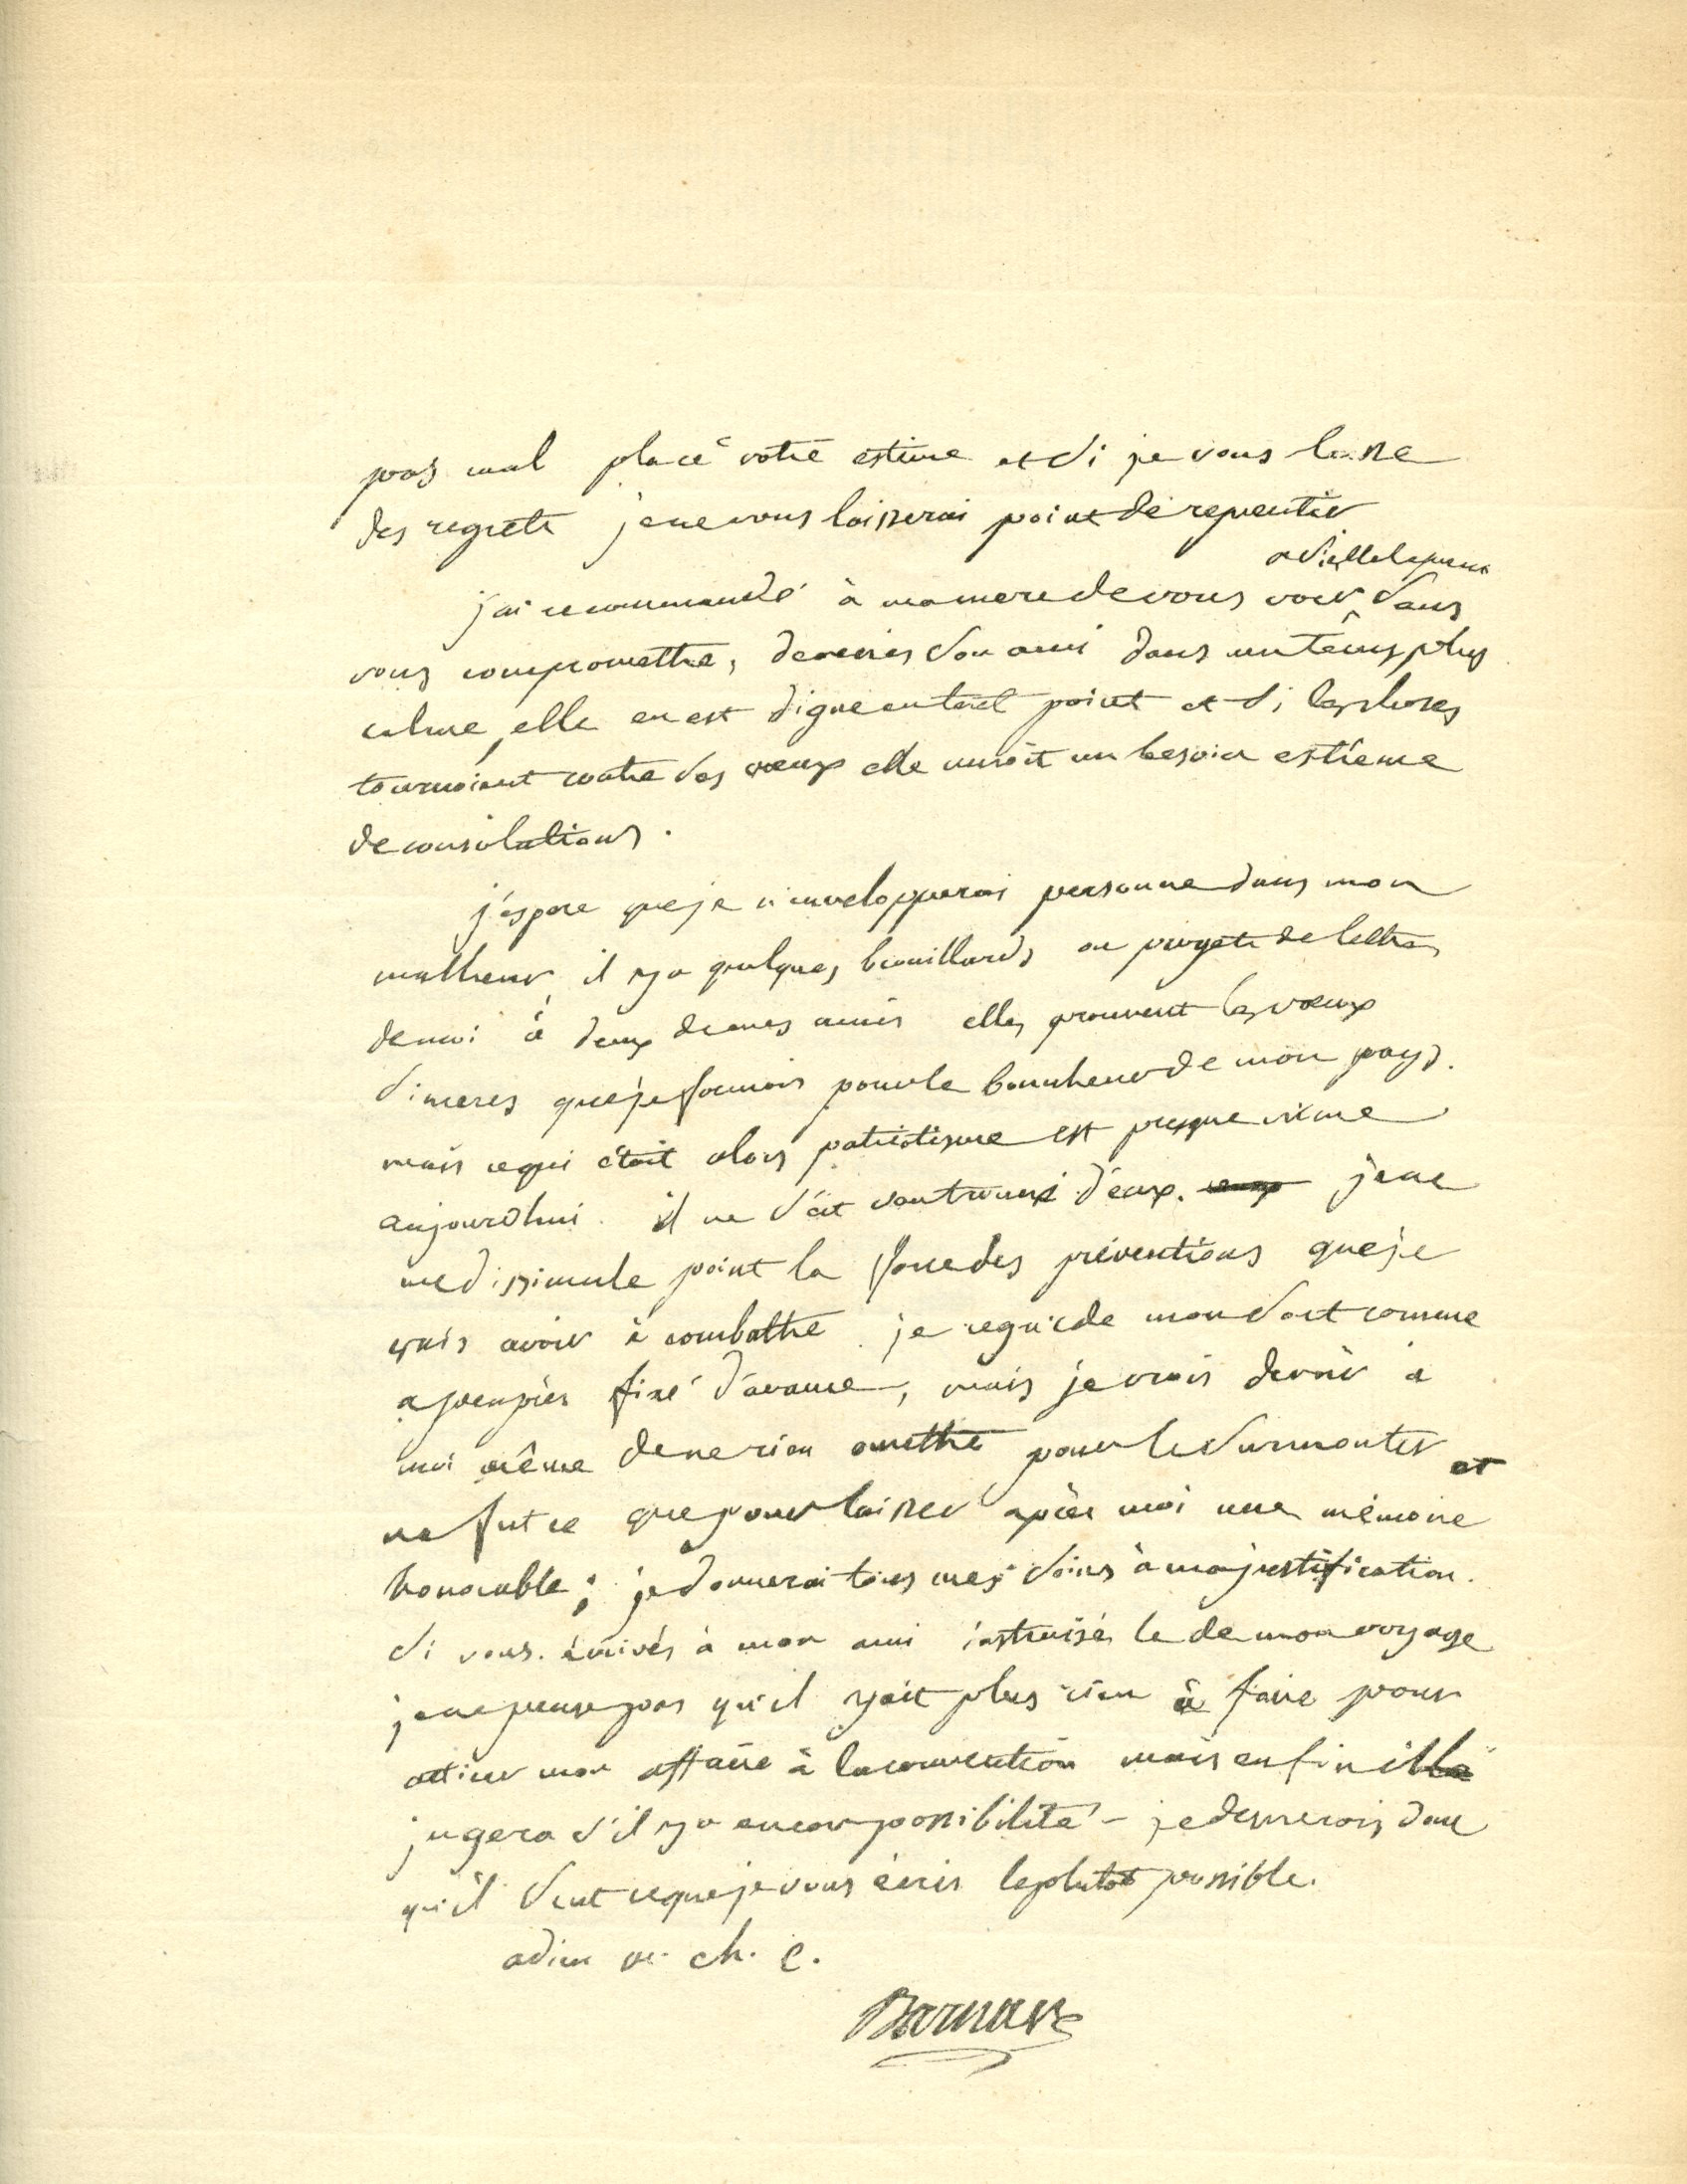 pas mal placé votre estime et si je vous laisse
des regrets je ne vous laisserai point de repentir
et si elle le peut
j'ai recommandé à ma mere de vous voir sans
vous compromettre, devenés son ami dans un têms plus
calme, elle en est digne en tout point et si les choses
tournoient contre ses vœux elle auroit un besoin extrême
de consolations.
j'espere que je n'envelopperai personne dans mon
malheur il y a quelques brouillards ou projets de lettres
de moi à deux de mes amis elles prouvent les vœux
sinceres que je formois pour le bonheur de mon pays.
mais ce qui était alors patriotisme est presque crime
aujourdhui. il ne s'est trouvé d'eux. je ne
me dissimule point la force des préventions que je
vais avoir à combattre. je regarde mon sort comme
a peu près fixé d'avance, mais je crois devoir a
moi même de ne rien omettre pour le surmonter et
ne fut ce que pour laisser après moi une mémoire
honorable; je donnerai tous mes soins à ma justification.
si vous écrivés à mon ami instruisés le de mon voyage
je ne pense pas qu'il y ait plus rien à faire pour
attirer mon affaire à la convention mais enfin il
jugera s'il y a encor possibilité - je desirerois donc
qu'il seut ce que je vous écris le plutot possible.
adieu m. ch. c.
Barnave